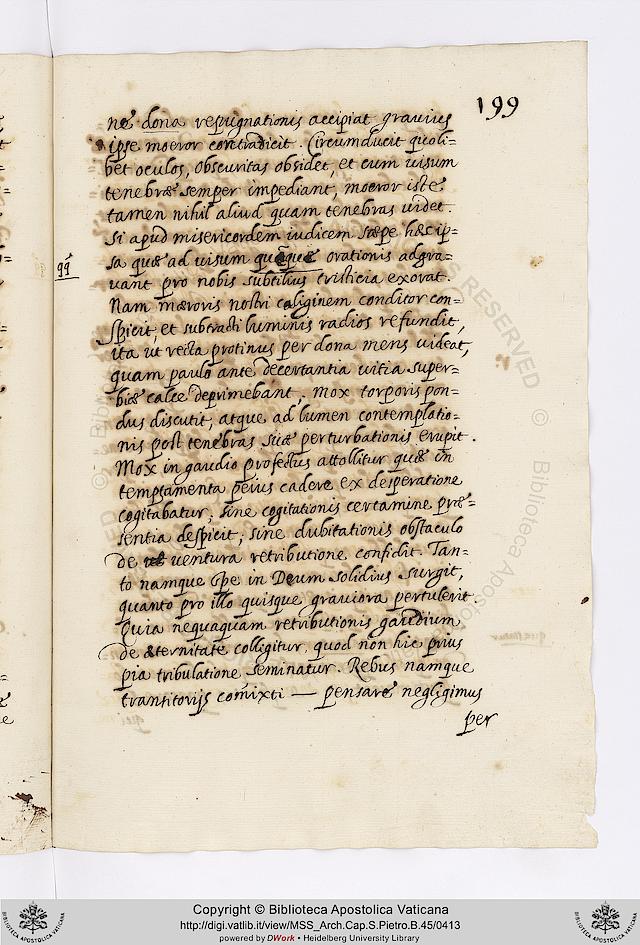 199
ne dona repugnationis accipiat gravius
ipse moeror contradicit. Circumducit quoli-
bet oculos, obscuritas obsidet, et cum uisum
tenebræ semper impediant, moeror iste
tamen nihil aliud quam tenebras uidet.
Si apud misericordem iudicem sæpe hæc ip-
sa quæ ad uisum quoque orationis adgra-
uant pro nobis subtilius tristicia exorat.
Nam mæroris nostri caliginem conditor con-
spicit, et subtracti luminis radios refundit,
ita ut recta protinus per dona mens uideat,
quam paulo ante decertantia uitia super-
biæ calce deprimebant, mox torporis pon-
dus discutit, atque ad lumen contemplatio-
nis post tenebras suæ perturbationis erupit.
Mox in gaudio profectus attollitur quæ in
temptamenta peius cadere ex desperatione
cogitabatur, sine cogitationis certamine præ-
sentia despicit, sine dubitationis obstaculo
de uentura retributione confidit. Tan-
to namque spe in Deum solidius surgit,
quanto pro illo quisque graviora pertulerit
Quia nequaquam retributionis gaudium
de æternitate colligitur, quod non hic prius
pia tribulatione seminatur. Rebus namque
transitorijs comixti — pensare negligimus
per
Copyright © Biblioteca Apostolica Vaticana
http://digi.vatlib.it/view/MSS_Arch.Cap.S.Pietro.B.45/0413
powered by DWork • Heidelberg University Library